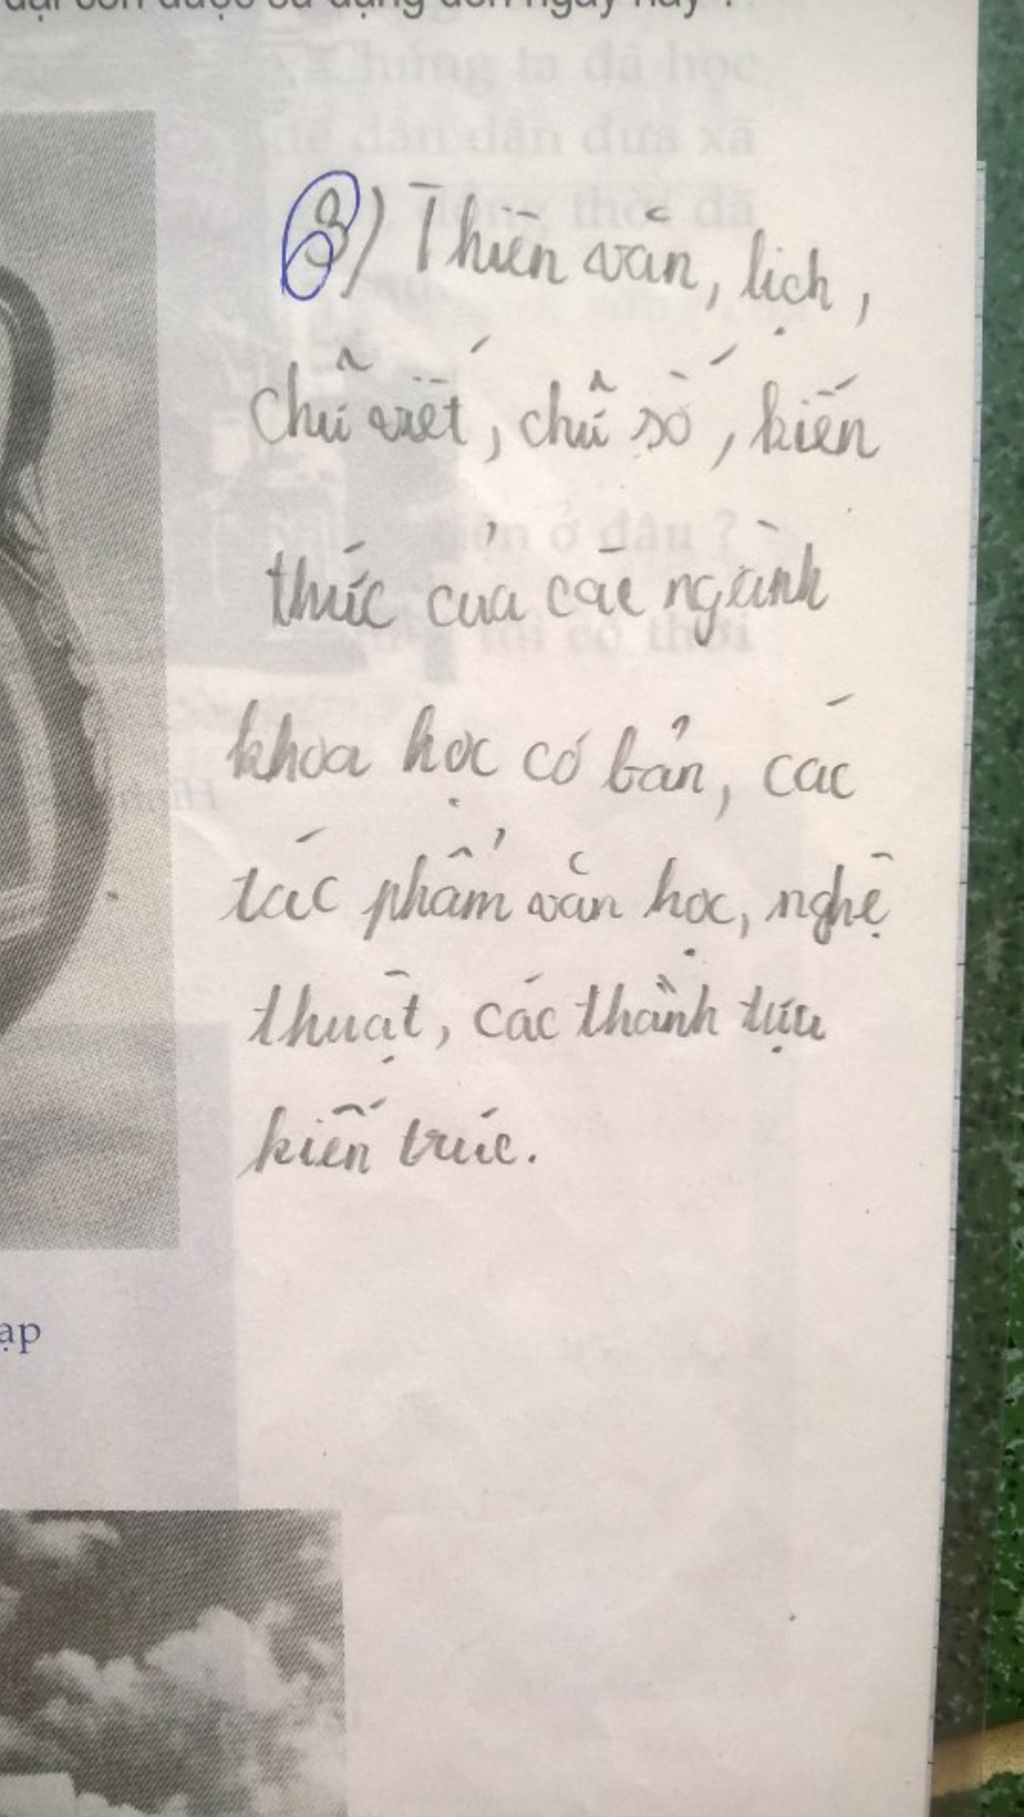 đại còn được sử dụng đến ngày nay ?
3) Thiên văn, lịch,
chữ viết, chữ số, kiến
thức của các ngành
khoa học cơ bản, các
tác phẩm văn học, nghệ
thuật, các thành tựu
kiến trúc.
ạp